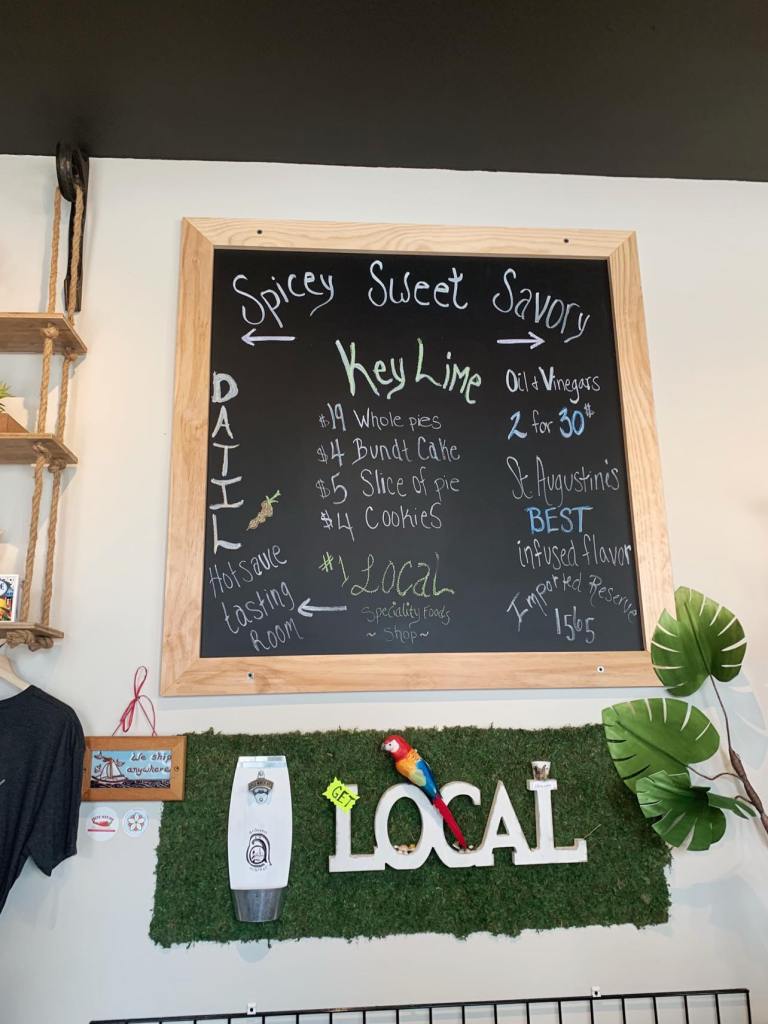 Spicey Sweet Savory
DATIL
Hot sauce
tasting
Room
Key Lime
$19 Whole pies
$4 Bundt Cake
$5 Slice of pie
$4 Cookies
#1 Local
Speciality Foods
~ Shop ~
Oil & Vinegars
2 for 30$
St Augustine's
BEST
infused flavor
Imported Reserve
1565
We ship
anywhere
GET
LOCAL